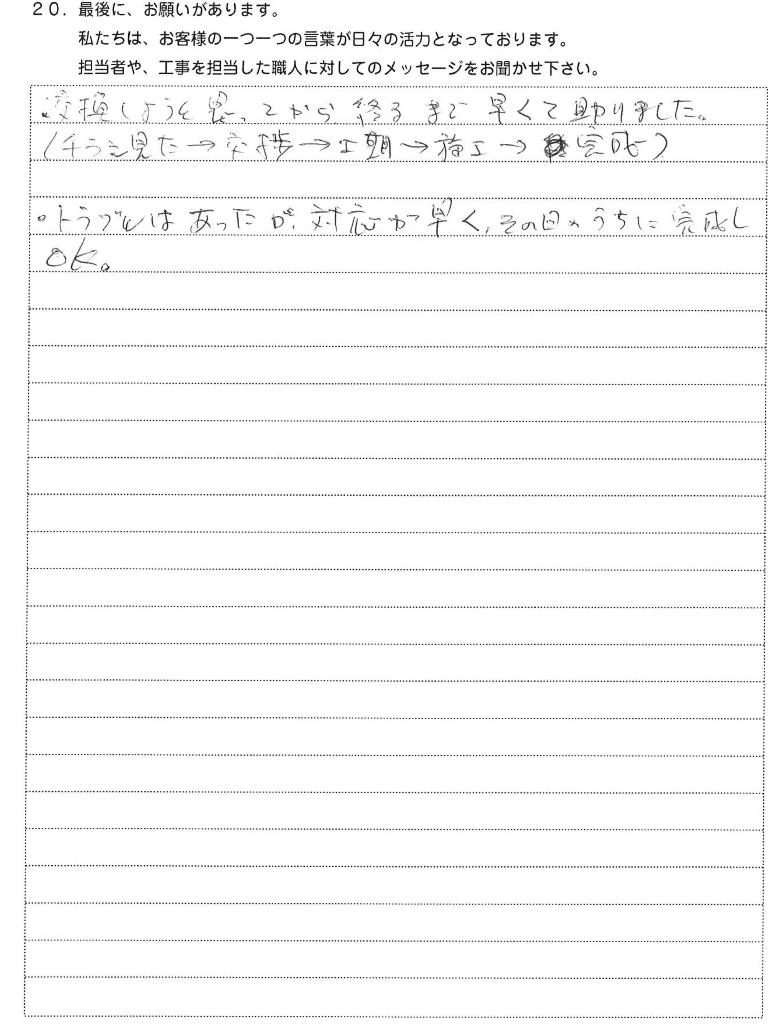 20．最後に、お願いがあります。
私たちは、お客様の一つ一つの言葉が日々の活力となっております。
担当者や、工事を担当した職人に対してのメッセージをお聞かせ下さい。
交換しようと思ってから終るまで早くて助りました。
(チラシ見た→交渉→工期→施工→完成)
○トラブルはあったが、対応が早く、その日のうちに完成し
OK。